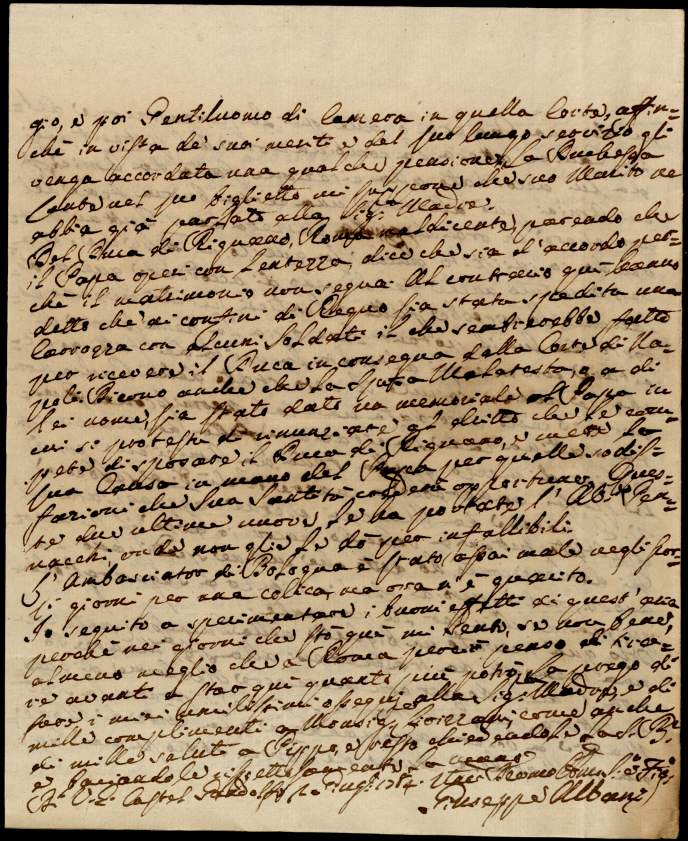 gio, e poi Gentiluomo di Camera in quella Corte, affin-
chè in vista de' suoi meriti e del suo lungo servizio gli
venga accordata una qualche pensione. La Duchessa
Conti nel suo biglietto mi suppone che suo Marito ne
abbia già parlato alla Sig.ra Madre.
Del Duca di Rignano, Roma maldicente, parendo che
il Papa operi con lentezza, dice che sia d'accordo per-
chè il matrimonio non segua. Al contrario quì hanno
detto che ai confini di Regno sia stata spedita una
carrozza con alcuni Soldati il che sembrerebbe fatto
per ricevere il Duca in consegna dalla Corte di Na-
poli. Dicono anche che la Malatesta, o a di
lei nome, sia stato dato un memoriale al Papa in
cui si protesta di rinunziare al diritto che le com-
pete di sposare il Duca di Rignano, e mette la
sua Causa in mano del Papa per quelle sodis-
fazioni che Sua Santità crederà opportune. Ques-
te due ultime nuove le ha portate l'Ab.e Per-
nacchi, onde non glie le dò per infallibili.
L'Ambasciator di Bologna è stato assai male negli scor-
si giorni per una colica, ma ora n'è guarito.
Io seguito a sperimentare i buoni effetti di quest'aria
perchè nei giorni che stò quì mi sento, se non bene,
almeno meglio che a Roma perciò penso di tira-
re avanti a star quì quanto più potrò. La prego di
fare i miei umilissimi ossequi alla Sig.ra Madre, e di
mille complimenti a Monsig.r, come anche
di mille saluti a Pippo, e resto chiedendole la S. B.e
e baciandole rispettosamente la mano
Di V. E. Castel Gandolfo
Giuseppe Albani